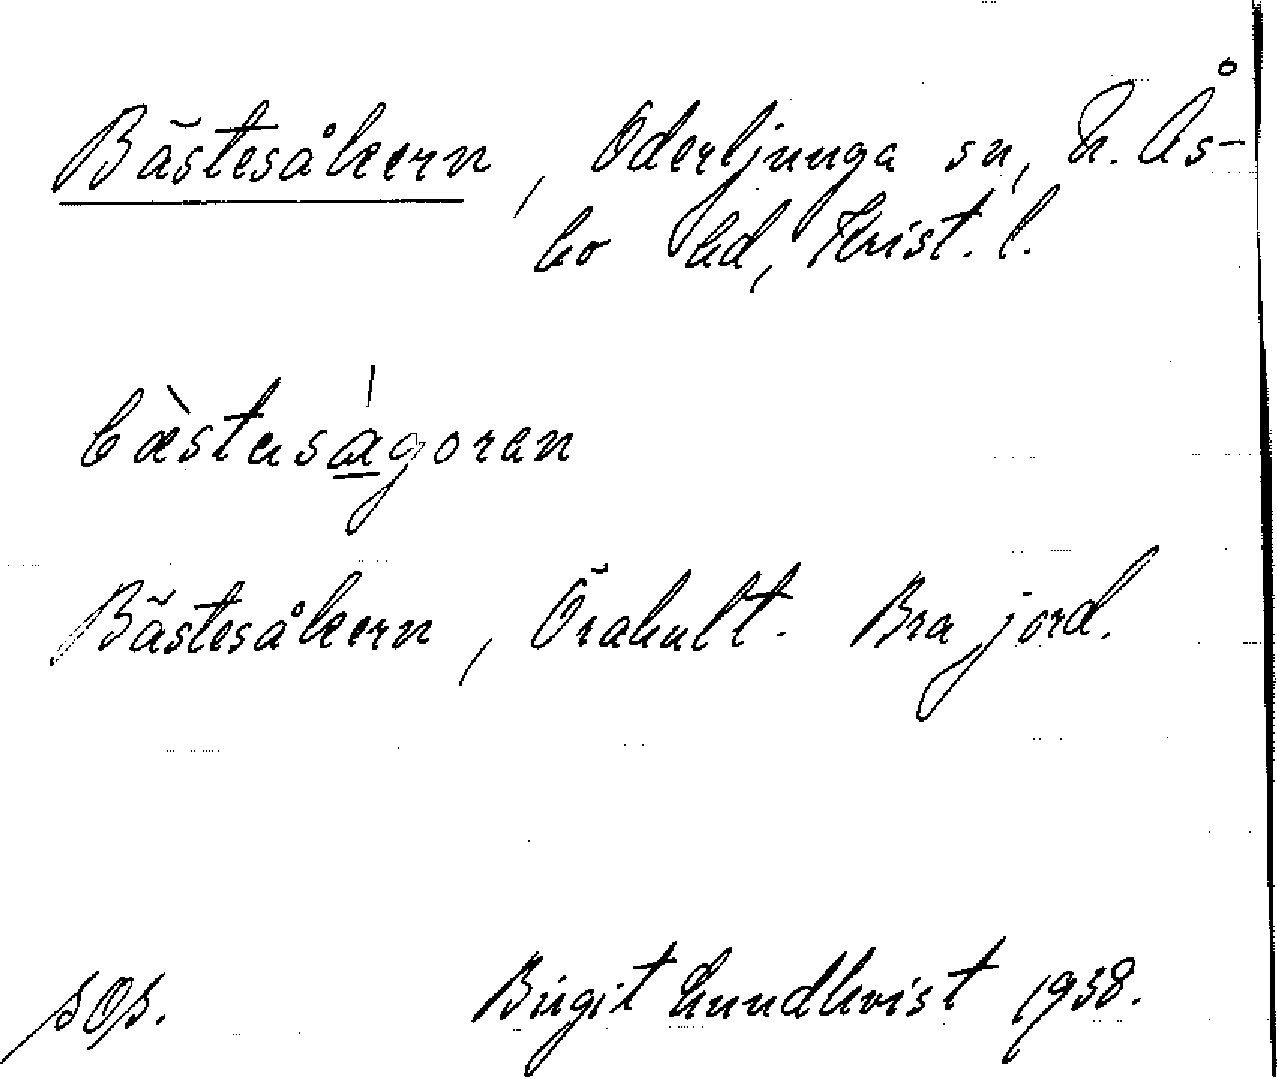 Bästesåkern, Oderljunga sn, N. Ås-
bo hd, Krist. l.
bæ̀staságoran
Bästesåkern, Örahult. Bra jord.
Birgit Lundkvist 1938.